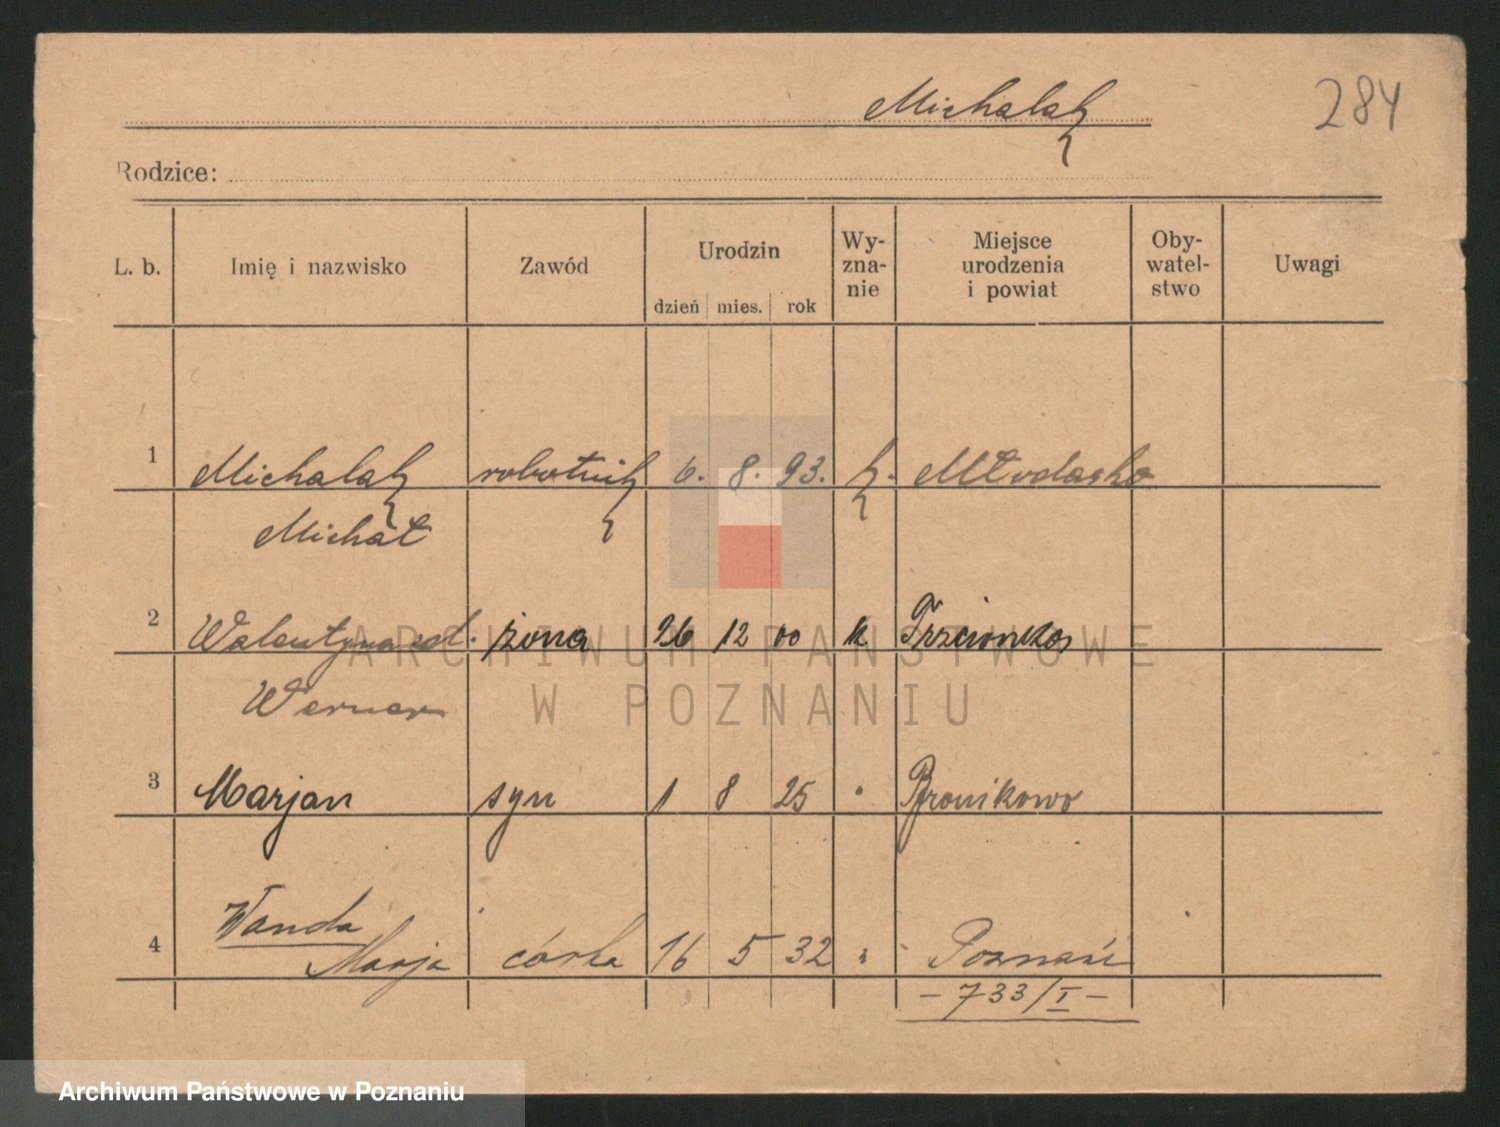 Michalak
284
Rodzice:
L. b. Imię i nazwisko Zawód Urodzin dzień mies. rok Wy-zna-nie Miejsce urodzenia i powiat Oby-watel-stwo Uwagi
1 Michalak robotnik 6. 8. 93. k. Młodasko
Michał
2 Walentyna żona 26 12 00 k Trzcionka
Werner
3 Marjan syn 1 8 25 " Bronikowo
Wanda
4 Marja córka 16 5 32 " Poznań
- 733/I -
ARCHIWUM PAŃSTWOWE
W POZNANIU
Archiwum Państwowe w Poznaniu